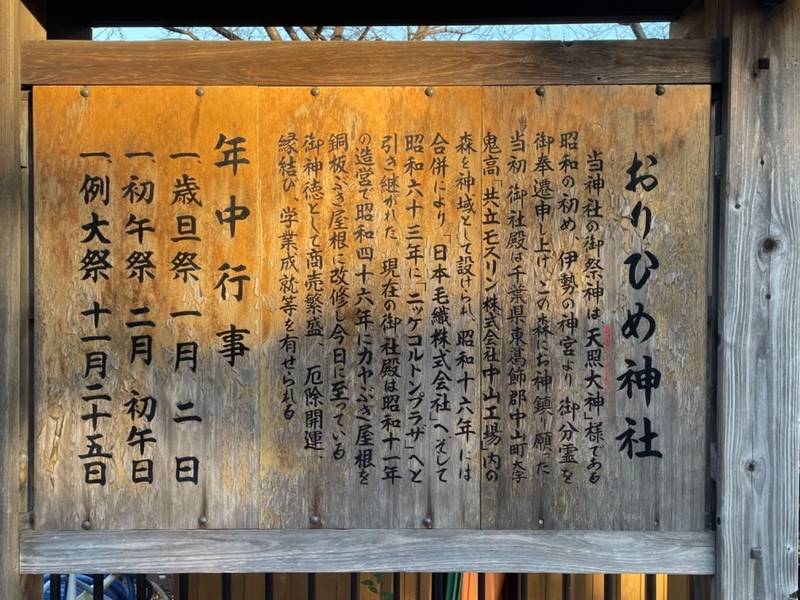 おりひめ神社
当神社の御祭神は「天照大神」様である
昭和の初め、伊勢の神宮より御分霊を
御奉遷申し上げ、この森にお神鎮り願った
当初御社殿は千葉県東葛飾郡中山町大字
鬼高「共立モスリン株式会社中山工場」内の
森を神域として設けられ、昭和十六年には
合併により「日本毛織株式会社」へそして
昭和六十三年に「ニッケコルトンプラザ」へと
引き継がれた、現在の御社殿は昭和十一年
の造営で昭和四十六年にカヤぶき屋根を
銅板ぶき屋根に改修し今日に至っている
御神徳として商売繁盛、厄除開運、
縁結び、学業成就等を有せられる
年中行事
一、歳旦祭 一月二日
一、初午祭 二月 初午日
一、例大祭 十一月二十五日